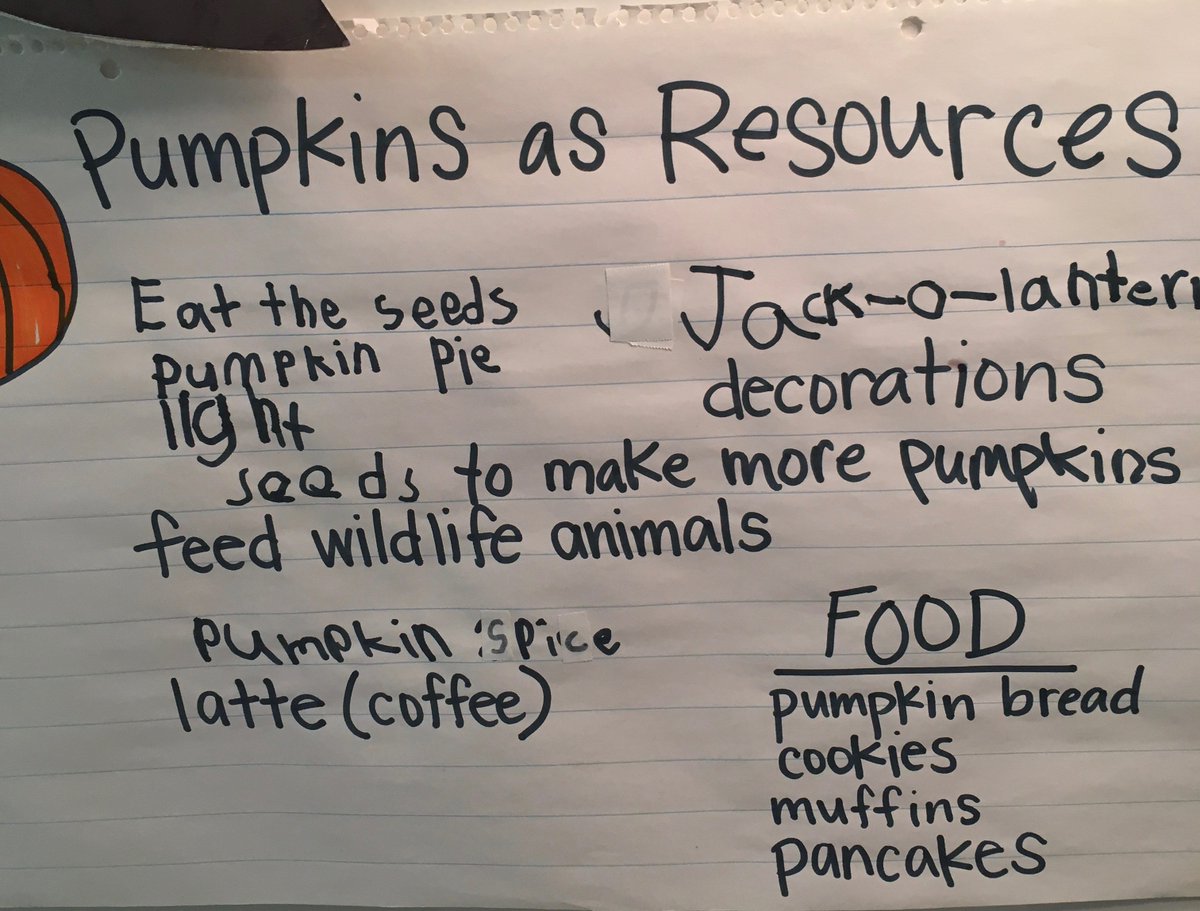 Pumpkins as Resources
Eat the seeds
pumpkin pie
light
Jack-o-lantern
decorations
seeds to make more pumpkins
feed wildlife animals
pumpkin spice
latte (coffee)
FOOD
pumpkin bread
cookies
muffins
pancakes